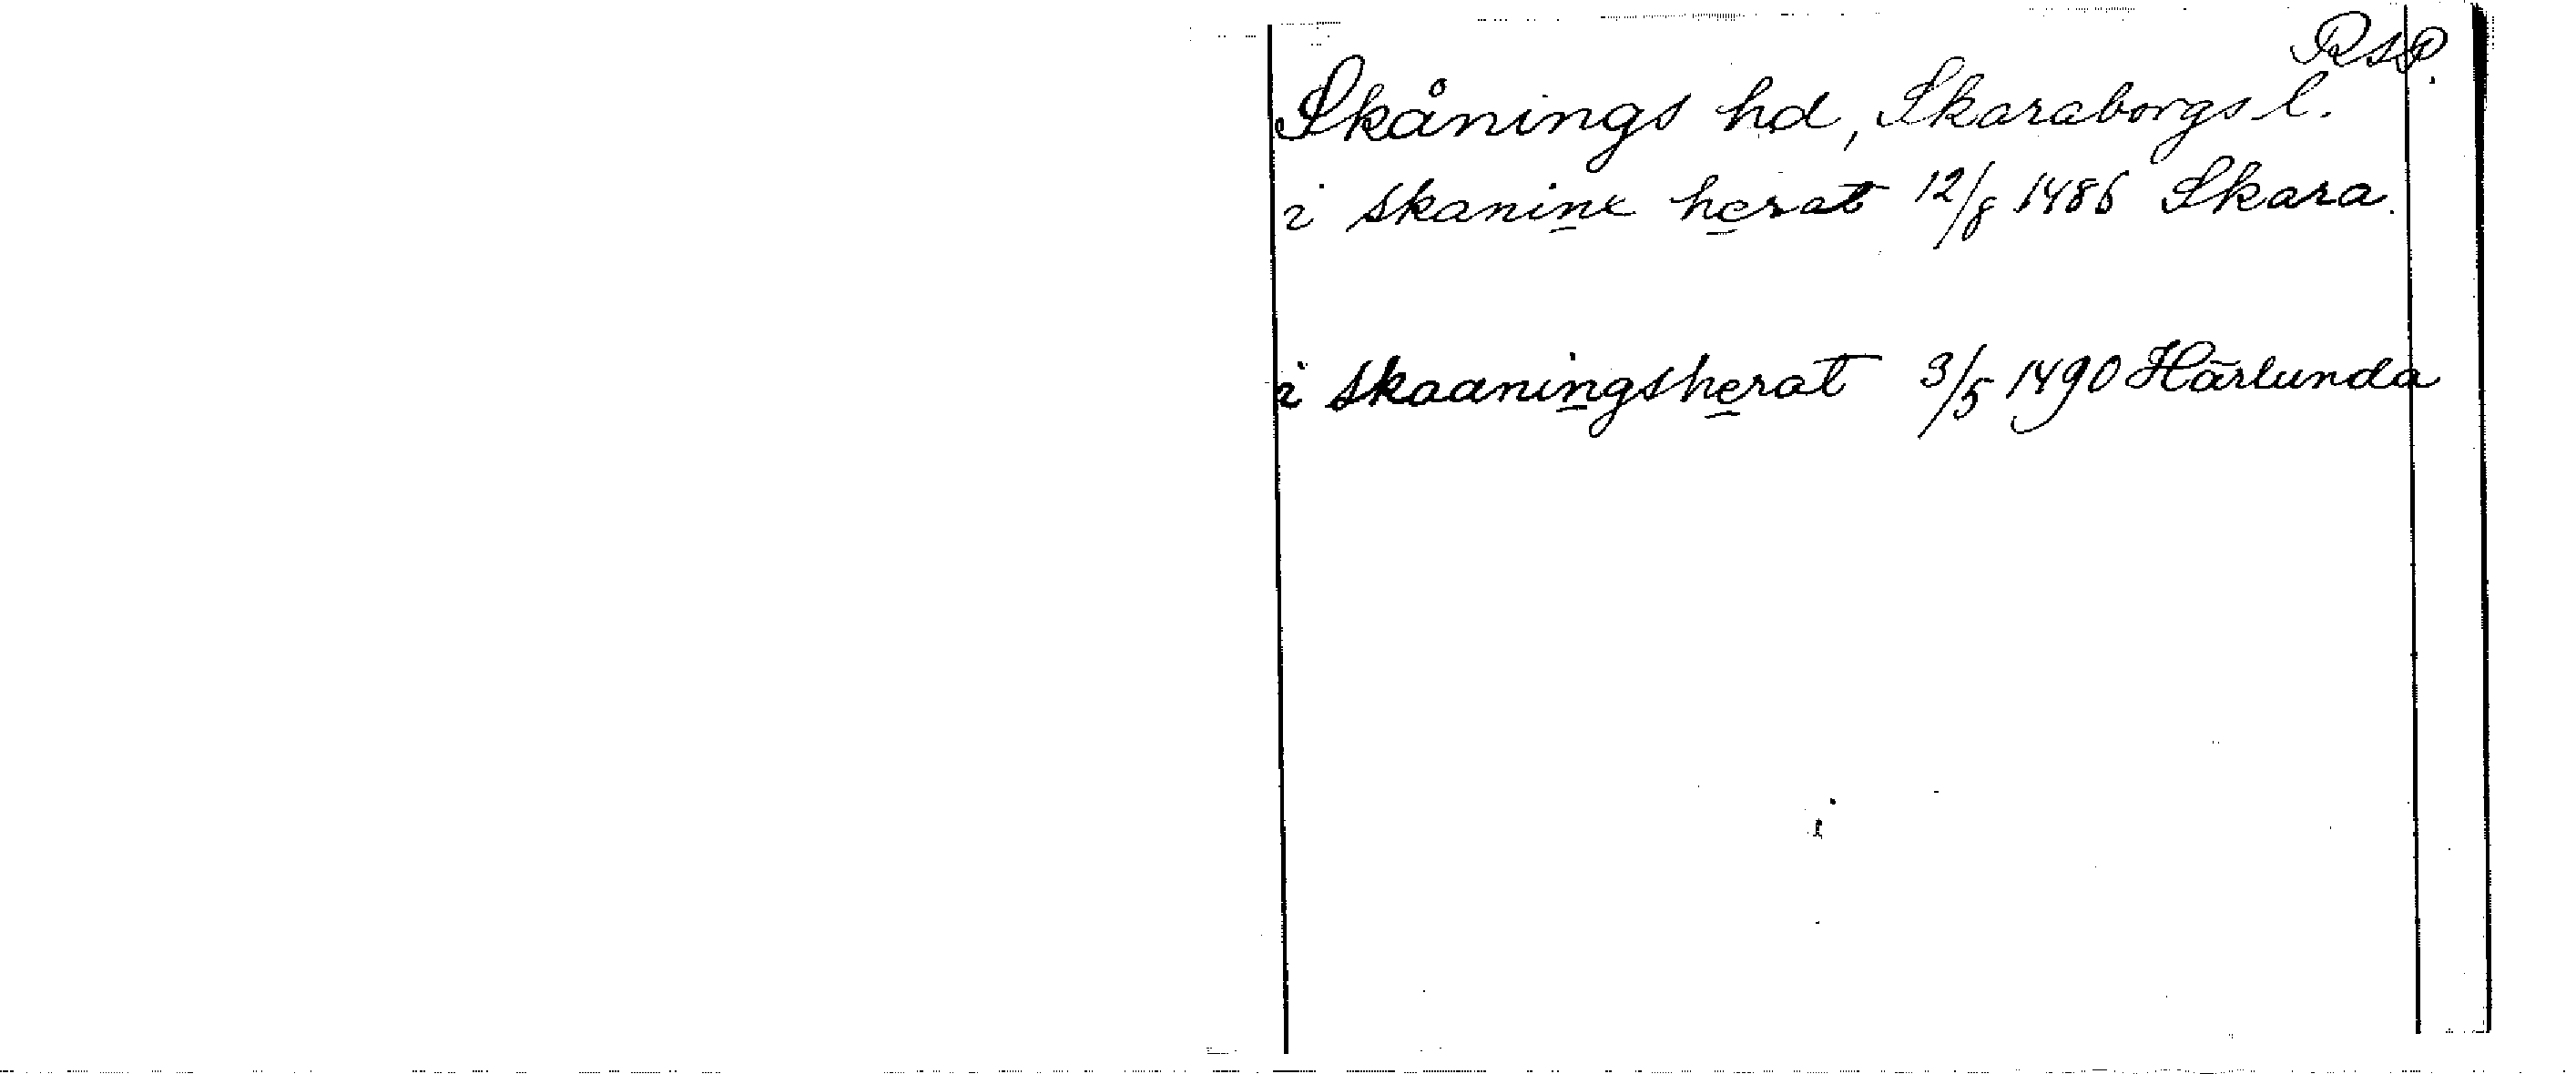 RSP.
Skånings hd, Skaraborgs l.
i skaninx herat 12/8 1486 Skara.
i skaaningsherat 3/5 1490 Härlunda